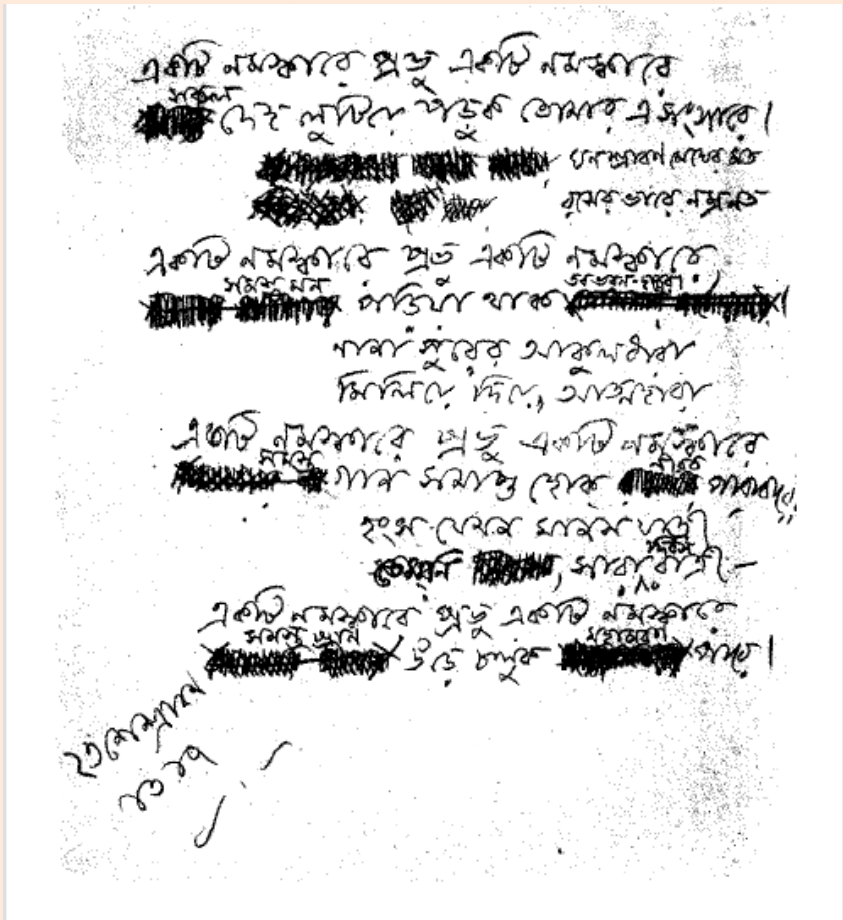 একটি নমস্কারে প্রভু একটি নমস্কারে
সকল
দেহ লুটিয়ে পড়ুক তোমার এ সংসারে।
ঘন শ্রাবণ মেঘের মত
রসের ভারে নম্র নত
একটি নমস্কারে প্রভু একটি নমস্কারে
সমস্ত মন
পড়িয়া থাক
নানা সুরের আকুলধারা
মিলিয়ে দিয়ে, আত্মহারা
একটি নমস্কারে প্রভু একটি নমস্কারে
সমস্ত নীরব
গান সমাপ্ত হোক পারাবারে।
হংস যেমন মানসযাত্রী
সারারাত্রি
একটি নমস্কারে প্রভু একটি নমস্কারে
সমস্ত প্রাণ মহামরণ
উড়ে চলুক পারে।
২৩শে শ্রাবণ
১৩১৭